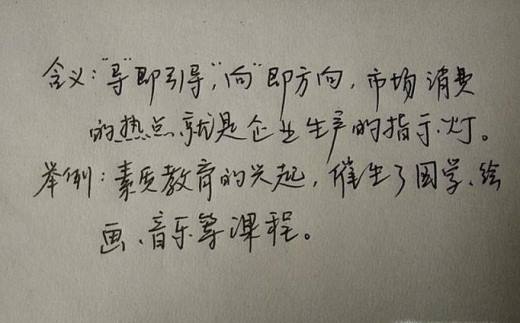 含义:“导”即引导,“向”即方向,市场消费
的热点就是企业生产的指示灯。
举例:素质教育的兴起,催生了国学、绘
画、音乐等课程。